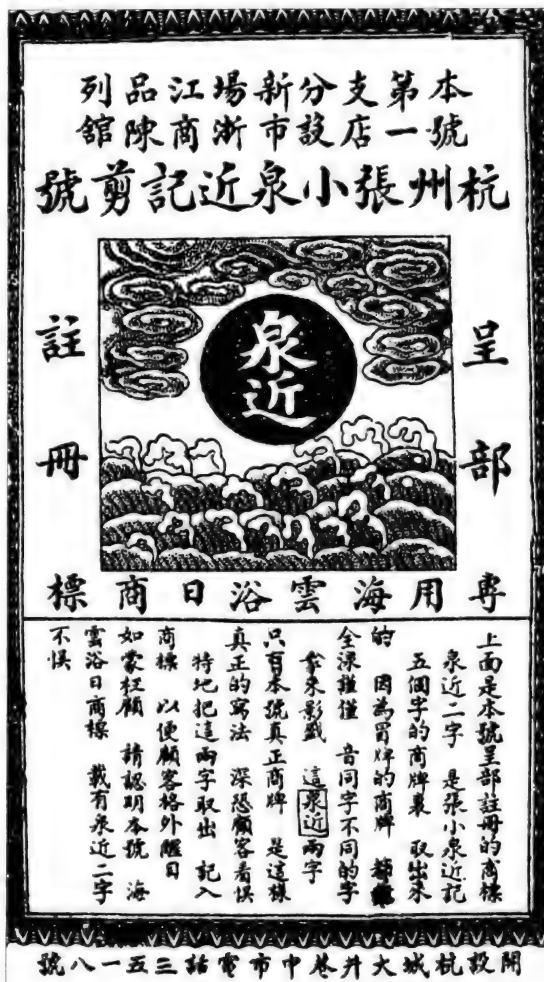 本號第一支店分設新市場浙江商品陳列舘
杭州張小泉近記剪號
呈部註冊
泉近
專用海雲浴日商標
上面是本號呈部註冊的商標
泉近二字 是張小泉近記
五個字的商牌裏 取出來
的 因為冒牌的商牌
全淥謹僅 音同字不同的字
拿來影戤 這泉近兩字
只有本號真正商牌 是這樣
真正的寫法 深恐顧客看悞
特地把這兩字取出 記入
商標 以便顧客格外醒目
如蒙枉顧 請認明本號 海
雲浴日商標 載有泉近二字
不悞
開設杭城大井巷中市電話三五一八號